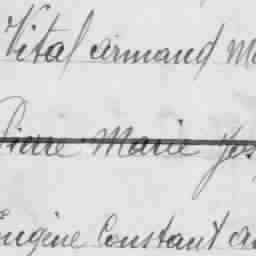 Vital armand M
Pierre Marie Jos
Eugène Constant a